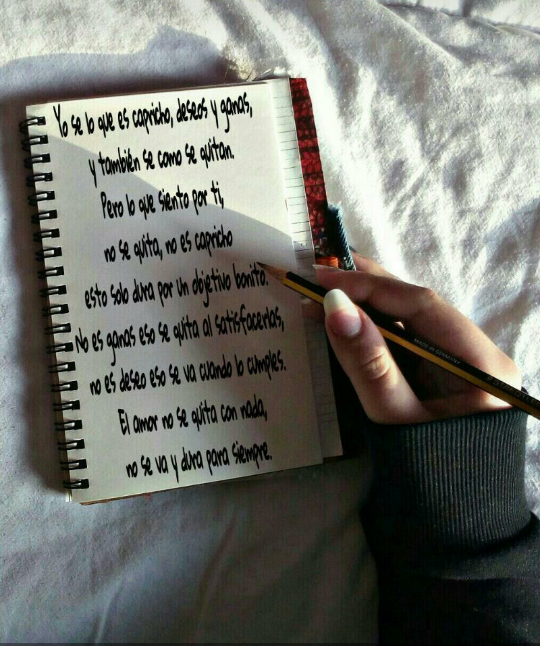 Yo se lo que es capricho, deseos y ganas,
y también se como se quitan.
Pero lo que siento por ti,
no se quita, no es capricho
esto solo dura por un objetivo bonito.
No es ganas eso se quita al satisfacerlas,
no es deseo eso se va cuando lo cumples.
El amor no se quita con nada,
no se va y dura para siempre.
MADE IN GERMANY